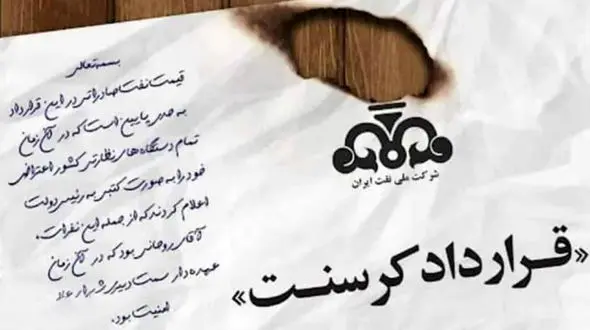 بسمه تعالی
قیمت نفت صادراتی در این قرارداد
به حدی پایین است که در آن زمان
تمام دستگاه های نظارتی کشور اعتراض
خود را به صورت کتبی به رئیس دولت
اعلام کردند که از جمله این نفرات،
آقای روحانی بود که در آن زمان
عهده دار سمت دبیری شورای عالی
امنیت بود.
شرکت ملی نفت ایران
«قرارداد کرسنت»